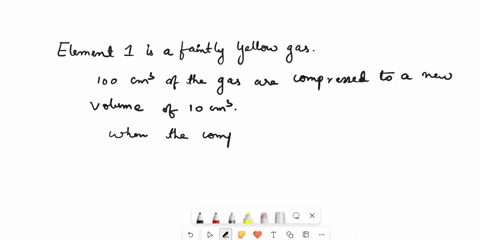 Element 1 is a faintly yellow gas.
100 cm³ of the gas are compressed to a new
volume of 10 cm³.
when the comp